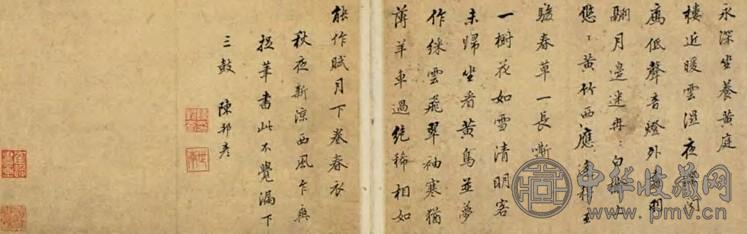 永深坐養黄庭
樓近暖雲溼夜
低聲音燈外羽
翩月邊迷冉〻白
黄竹西應
駿春草一長嘶
一樹花如雪清明客
未歸坐看黄鳥並夢
作綵雲飛翠袖寒猶
薄羊車過絶稀相如
能作賦月下卷春衣
秋夜新涼西風乍興
捉筆書此不覺漏下
三鼓 陳邦彦
中华收藏网
www.pmv.cn